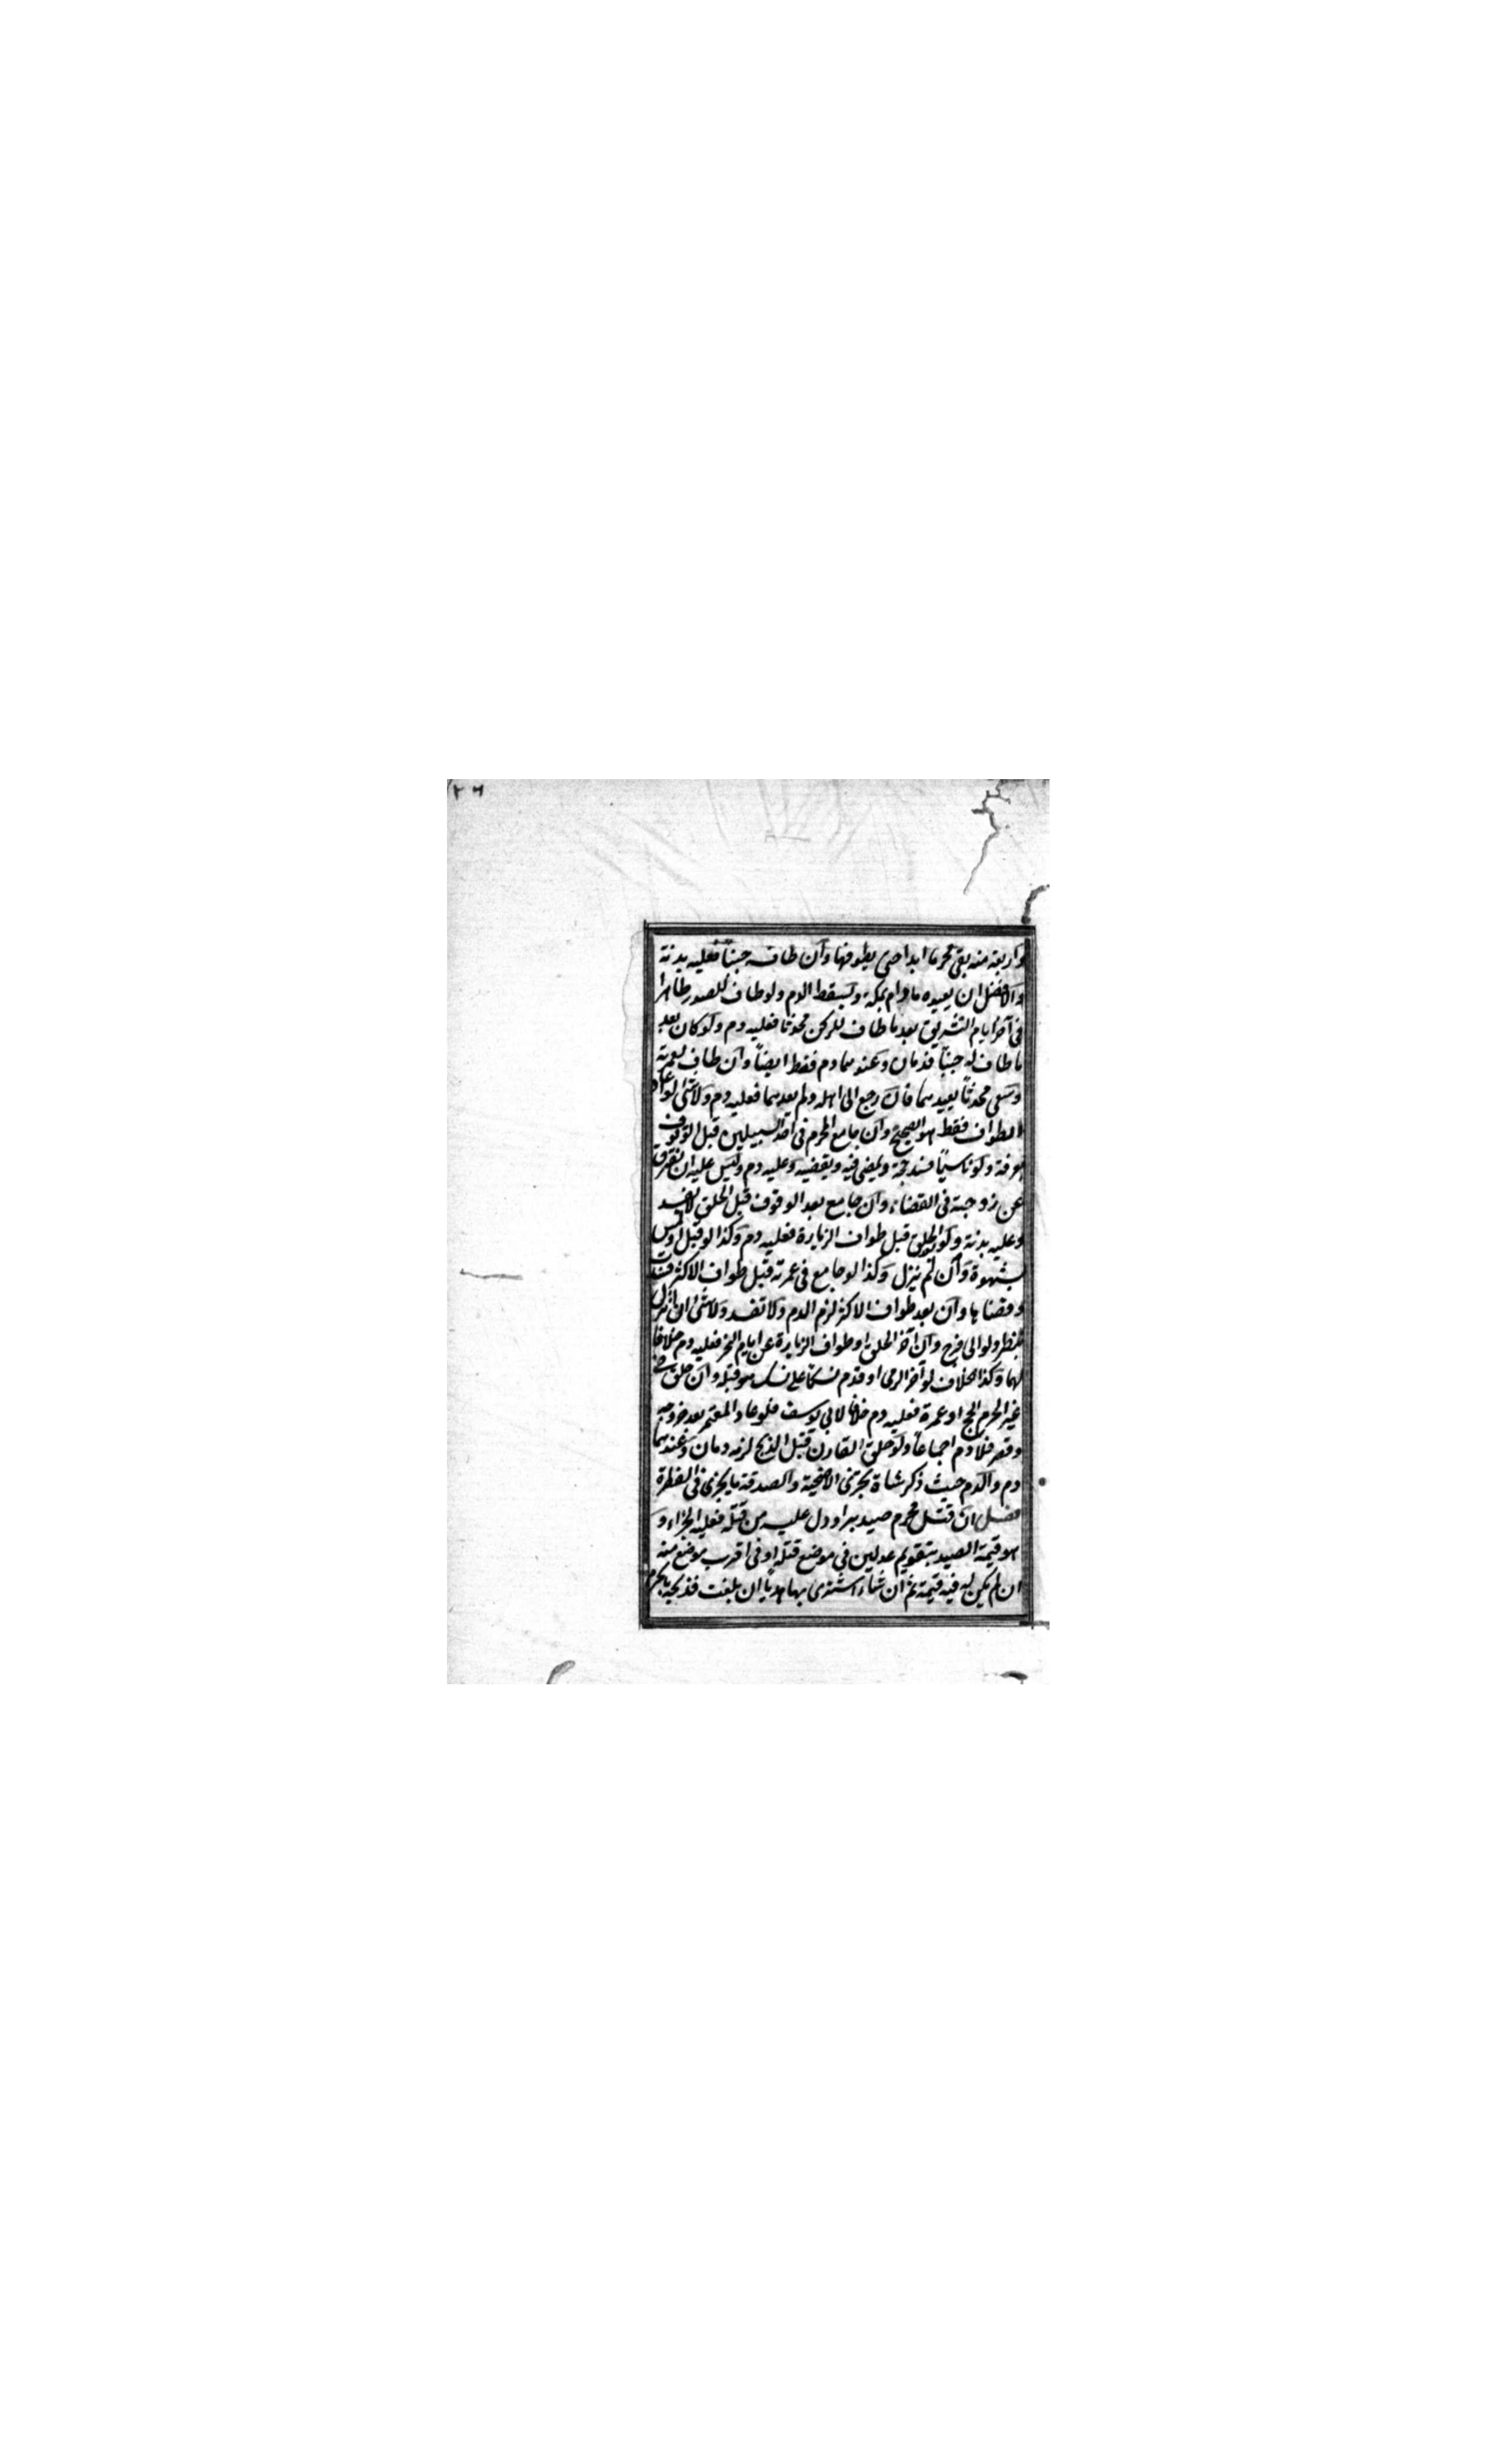 ٢٦
واربعة منه بقى محرما ابدا حتى يطوفها وان طاف جنبا فعليه بدنة
والافضل ان يعيده مادام بمكة ويسقط الدم ولو طاف للصدر طاهرا
فى آخر ايام التشريق بعد ما طاف للركن محدثا فعليه دم ولو كان بعد
ما طاف له جنبا فدمان وعندهما دم فقط ايضا وان طاف لعمرته
وسعى محدثا يعيدهما فان رجع الى اهله ولم يعدهما فعليه دم ولا شئ لو اعاد
الطواف فقط هو الصحيح وان جامع المحرم فى احد السبيلين قبل الوقوف
بعرفة ولو ناسيا فسد حجه ويمضى فيه ويقضيه وعليه دم وليس عليه ان يفترق
عن زوجته فى القضاء وان جامع بعد الوقوف قبل الحلق لا يفسد
وعليه بدنة ولو بعد الحلق قبل طواف الزيارة فعليه دم وكذا لو قبل او لمس
بشهوة وان لم ينزل وكذا لو جامع فى عمرته قبل طواف الاكثر فسدت
وقضاها وان بعد طواف الاكثر لزم الدم ولا تفسد ولا شئ ان انزل
بنظر ولو الى فرج وان اخر الحلق او طواف الزيارة عن ايام النحر فعليه دم خلافا
لهما وكذا الخلاف لو اخر الرمى او قدم نسكا على نسك هو قبله وان حلق فى
غير الحرم لحج او عمرة فعليه دم خلافا لابى يوسف فلو عاد المعتمر بعد خروجه
وقصر فلا دم اجماعا ولو حلق القارن قبل الذبح لزمه دمان وعندهما
دم والدم حيث ذكر شاة تجزئ فى الاضحية والصدقة ما يجزئ فى الفطرة
فصل ان قتل محرم صيد بر او دل عليه من قتله فعليه الجزاء و
هو قيمة الصيد بتقويم عدلين فى موضع قتله او فى اقرب موضع منه
ان لم يكن له فيه قيمة ثم ان شاء اشترى بها هديا ان بلغت فذبحه بالحرم